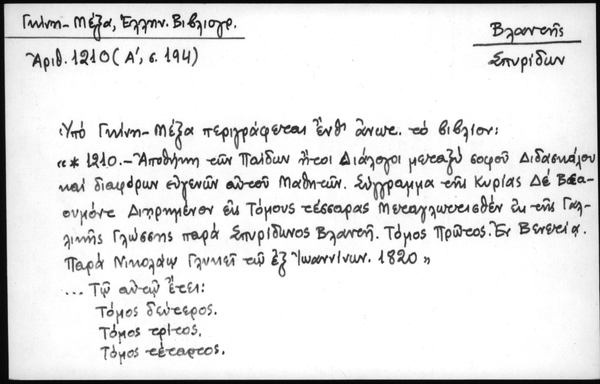 Γκίνη-Μέξα, Ἑλλην. Βιβλιογρ.
Ἀριθ. 1210 (Α', σ. 194)
Βλαντῆς
Σπυρίδων
Ὑπό Γκίνη-Μέξα περιγράφεται ἔνθ' ἀνωτ. τό βιβλίον:
«* 1210.- Ἀποθήκη τῶν Παίδων ἤτοι Διάλογοι μεταξύ σοφοῦ Διδασκάλου
καί διαφόρων εὐγενῶν αὐτοῦ Μαθητῶν. Σύγγραμμα τῆς Κυρίας Δέ Βοα-
ουμόντ Διῃρημένον εἰς Τόμους τέσσαρας Μεταγλωττισθέν ἐκ τῆς Γαλ-
λικῆς Γλώσσης παρά Σπυρίδωνος Βλαντῆ. Τόμος Πρῶτος. Ἐν Βενετίᾳ.
Παρά Νικολάῳ Γλυκεῖ τῷ ἐξ Ἰωαννίνων. 1820»
... Τῷ αὐτῷ ἔτει:
Τόμος δεύτερος.
Τόμος τρίτος.
Τόμος τέταρτος.